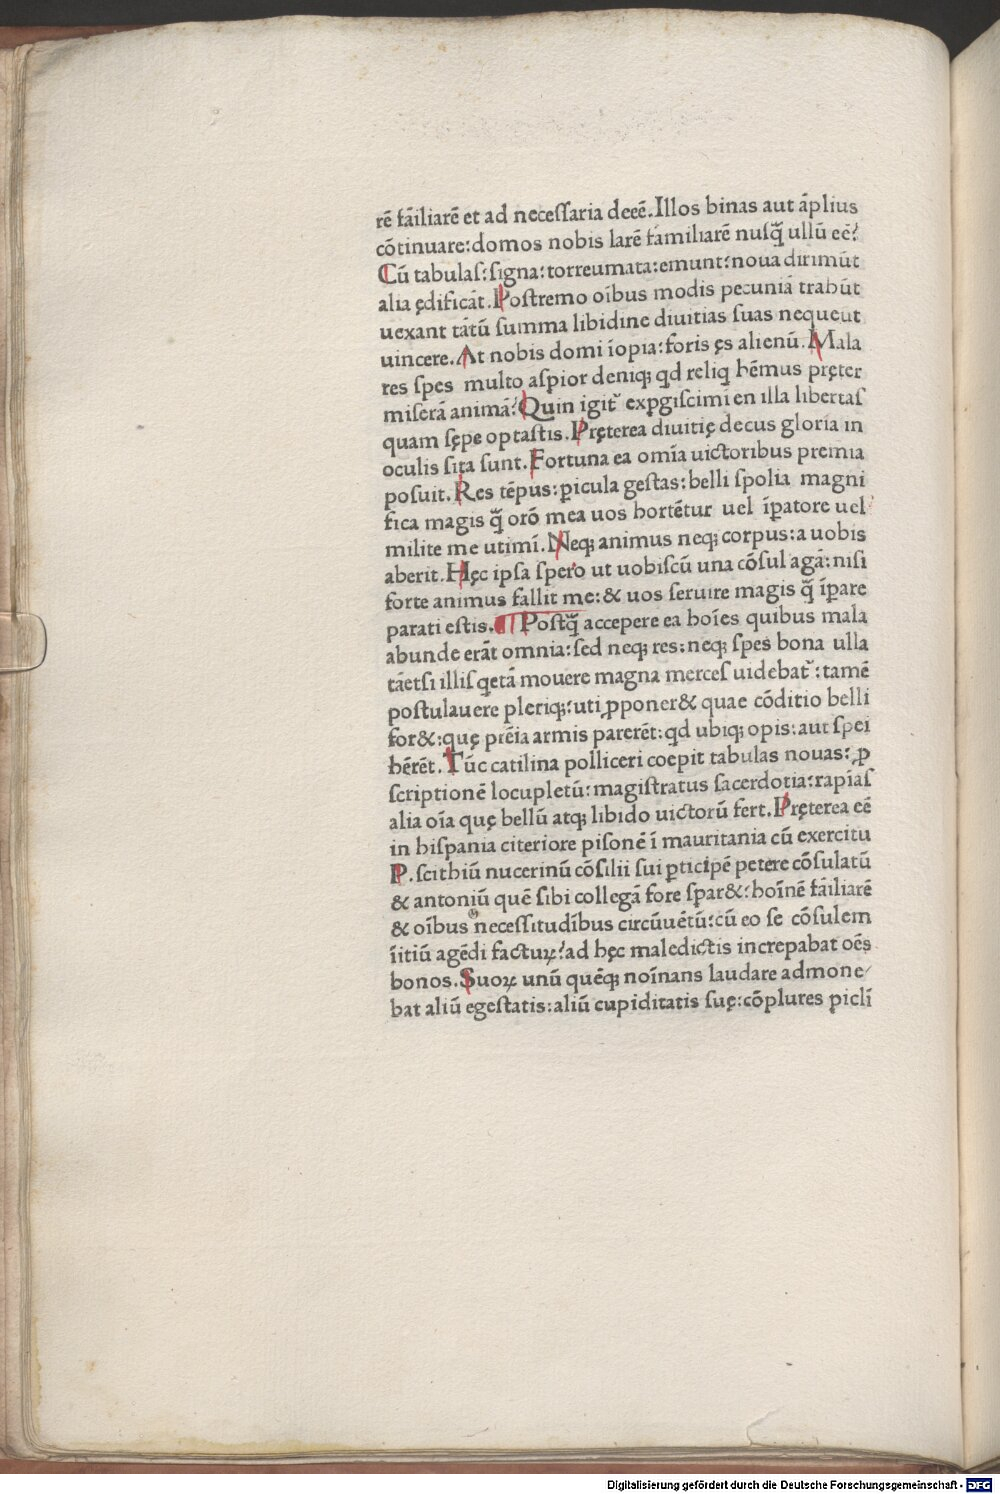 rē fāiliarē et ad neceſſaria deeē. Illos binas aut āplius
cōtinuare: domos nobis larē familiarē nusq̄ ullū eē?
Cū tabulaſ: ſigna: torreumata: emunt: noua dirimūt
alia ędificāt. Poſtremo oībus modis pecuniā trahūt
uexant tātū ſumma libidine diuitias ſuas nequeut
uincere. At nobis domi īopia: foris ęs alienū. Mala
res ſpes multo aſpior deniqꝫ qd reliq hēmus pręter
miſerā animā? Quin igit᷑ expgiſcimi en illa libertaſ
quam ſępe optaſtis. Pręterea diuitię decus gloria in
oculis ſita ſunt. Fortuna ea omīa uictoribus premia
poſuit. Res tēpus: ꝑicula geſtas: belli ſpolia magni
fica magis q̄ orō mea uos hortētur uel īꝑatore uel
milite me utimī. Neqꝫ animus neqꝫ corpus: a uobis
aberit. Hęc ipſa ſpero ut uobiſcū una cōſul agā: niſi
forte animus fallit me: & uos ſeruire magis q̄ īꝑare
parati eſtis. ¶ Poſtq̄ accepere ea hoīes quibus mala
abunde erāt omnia: ſed neqꝫ res: neqꝫ ſpes bona ulla
tāetſi illiſ qetā mouere magna merceſ uidebat᷑: tamē
poſtulauere pleriqꝫ: uti ꝓponer& quae cōditio belli
for&: quę prēia armis parerēt: qd ubiqꝫ opis: aut ſpei
hērēt. Tūc catilina polliceri coepit tabulas nouas: ꝓ
ſcriptionē locupletū: magiſtratus ſacerdotia: rapīaſ
alia oīa quę bellū atqꝫ libido uictorū fert. Pręterea eē
in hiſpania citeriore piſonē ī mauritania cū exercitu
P. ſcithiū nucerinū cōſilii ſui ꝑticipē petere cōſulatū
& antoniū quē ſibi collegā fore ſpar&: hoīnē fāiliarē
& oībus neceſſitudībus circūuētū: cū eo ſe cōſulem
īitiū agēdi factuꝝ? ad hęc maledictis increpabat oēs
bonos. Suoꝝ unū quēqꝫ noīnans laudare admone/
bat aliū egeſtatis: aliū cupiditatis ſuę: cōplures piclī
Digitalisierung gefördert durch die Deutsche Forschungsgemeinschaft - DFG